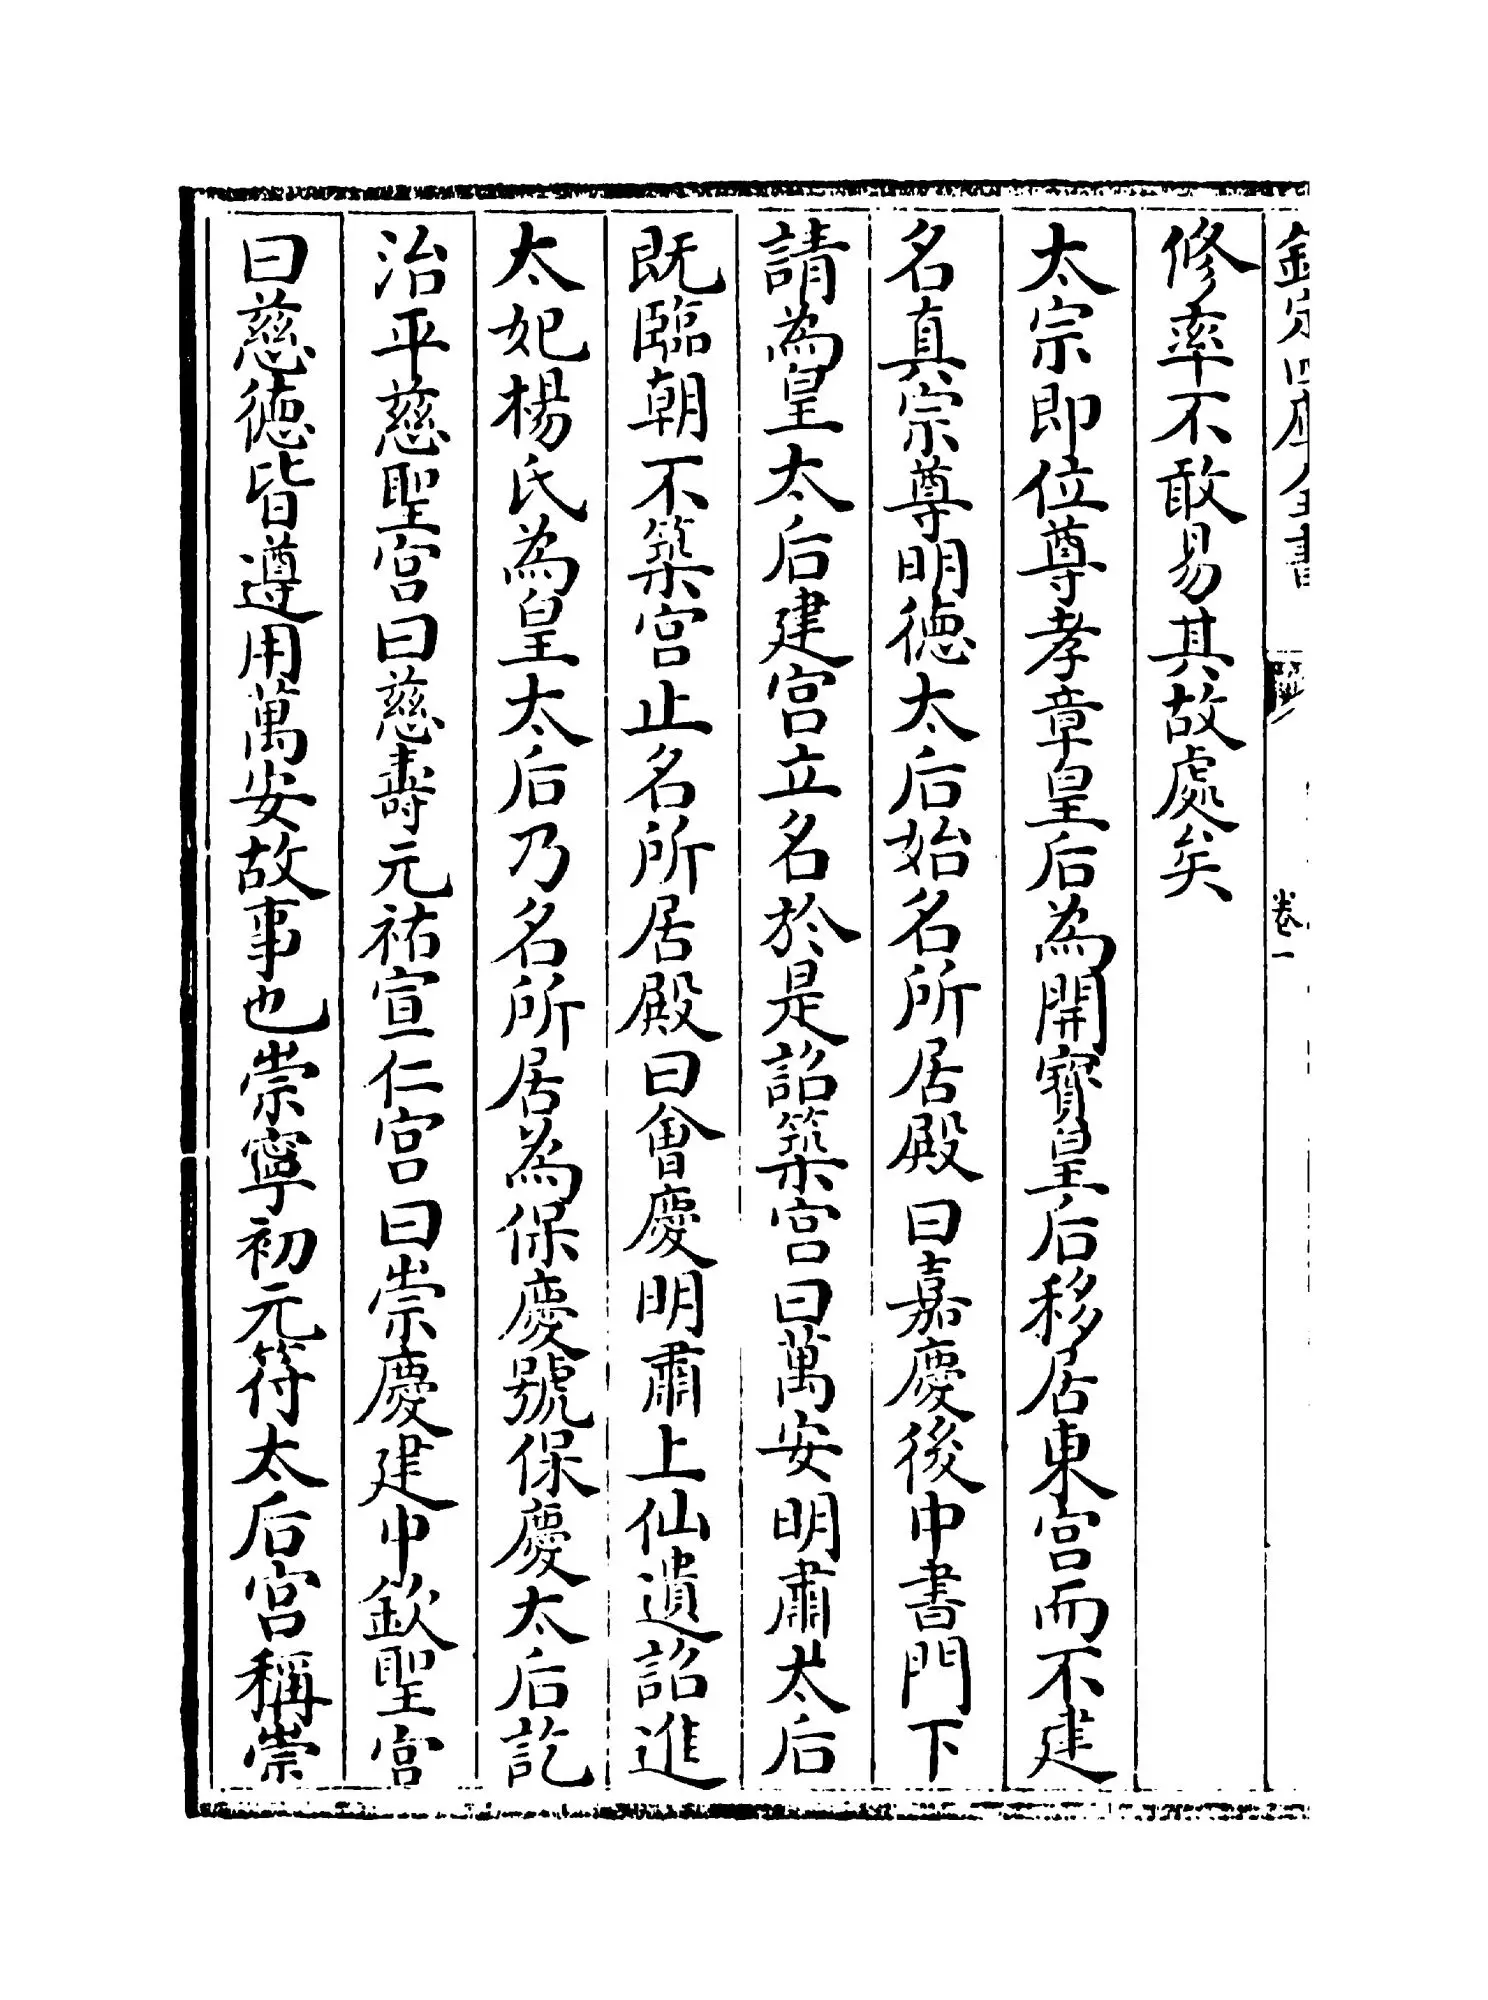 欽定四庫全書
卷一
修率不敢易其故處矣
太宗即位尊孝章皇后為開寳皇后移居東宫而不建
名真宗尊明徳太后始名所居殿曰嘉慶後中書門下
請為皇太后建宫立名於是詔築宫曰萬安明肅太后
既臨朝不築宫止名所居殿曰㑹慶明肅上仙遺詔進
太妃楊氏為皇太后乃名所居為保慶號保慶太后訖
治平慈聖宫曰慈壽元祐宣仁宫曰崇慶建中欽聖宫
曰慈徳皆遵用萬安故事也崇寧初元符太后宫稱崇